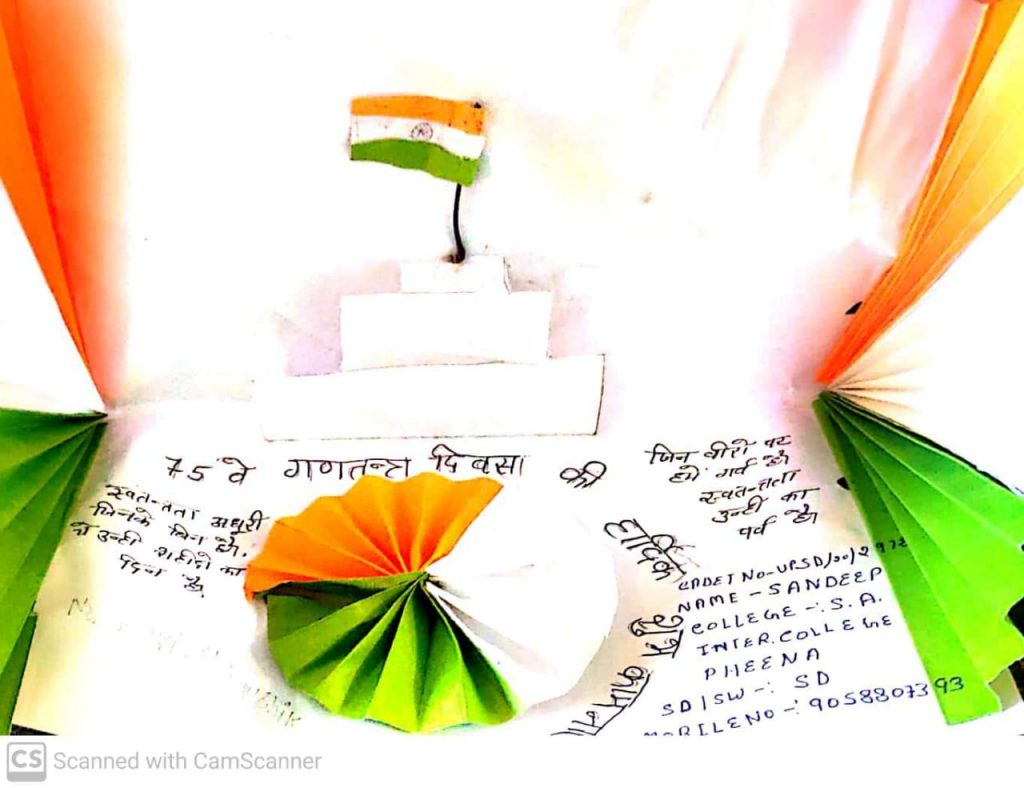 75 वे गणतन्त्रा दिवसा की
हार्दिक
शुभ
स्वतन्त्रता अधुरी
जिनके बिन है,
ये उन्ही शहीदो का
दिन है
जिन वीरो पर
हमें गर्व है
स्वतन्त्रता
उन्ही का
पर्व है
CADET NO-UPSD/00/2972
NAME - SANDEEP
COLLEGE -: S. A.
INTER.COLLEGE
PHEENA
SD/SW -: SD
MOBILENO -: 9058807393
CS Scanned with CamScanner